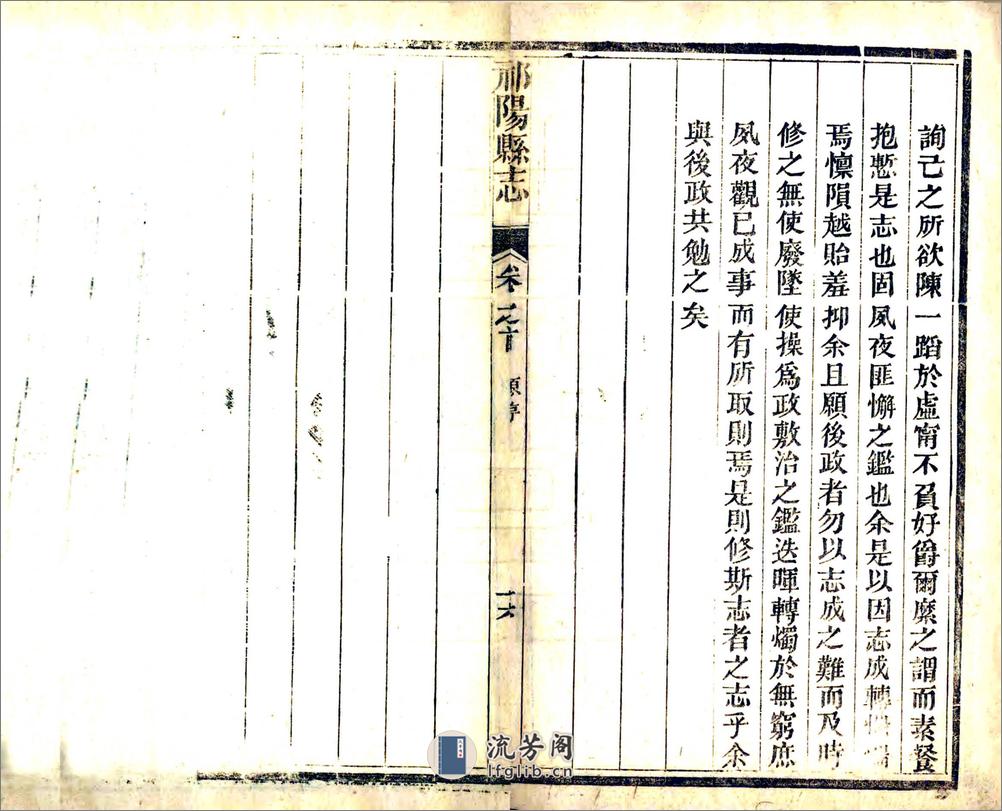 詢己之所欲陳一蹈於虛甯不負好爵爾縻之謂而素餐
抱慙是志也固夙夜匪懈之鑑也余是以因志成轉
焉懍隕越貽羞抑余且願後政者勿以志成之難而及時
修之無使廢墜使操爲政敷治之鑑迭暉轉燭於無窮庶
夙夜觀已成事而有所取則焉是則修斯志者之志乎余
與後政共勉之矣
祁陽縣志
卷之首
原序
十六
流芳阁
lfglib.cn